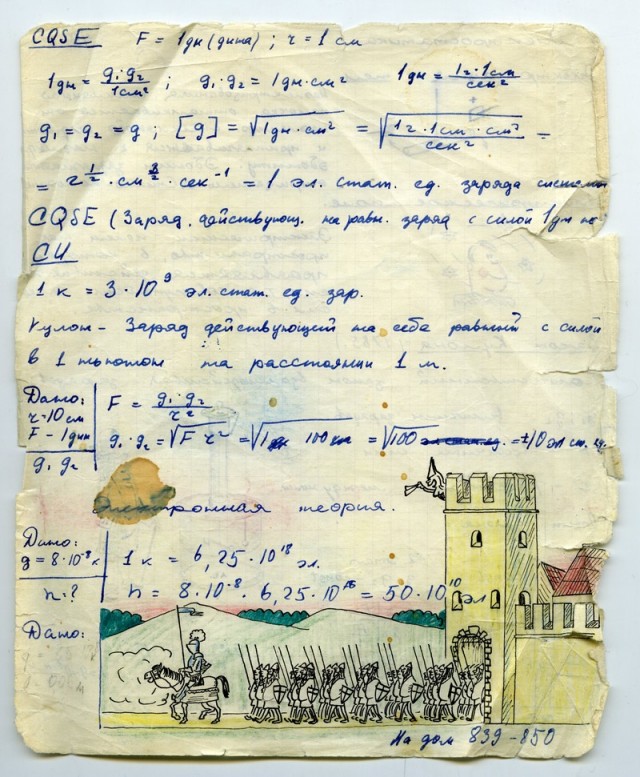 CQSE F = 1дн (дина) ; r = 1 см
1дн = g₁·g₂/1см² ; g₁·g₂ = 1дн·см² 1дн = 1г·1см/сек²
g₁ = g₂ = g ; [g] = √(1дн·см²) = √(1г·1см·см²/сек²) =
= г^½ · см^3/2 · сек⁻¹ = 1 эл. стат. ед. заряда системы
CQSE (Заряд, действующ. на равн. заряд с силой 1дн на
СИ
1 к = 3·10⁹ эл. стат. ед. зар.
Кулон - Заряд действующий на себе равный с силой
в 1 ньютон на расстоянии 1 м.
Дано:
r = 10 см
F - 1дин
g₁ g₂
F = g₁·g₂/r²
g₁·g₂ = √(F r²) = √(1 100) = √100 = ±10 эл ст. ед.
Электронная теория.
Дано:
g = 8·10⁻⁸ к
n = ?
1 к = 6,25·10¹⁸ эл.
n = 8·10⁻⁸ · 6,25·10¹⁸ = 50·10¹⁰ эл
Дано:
На дом 839-850